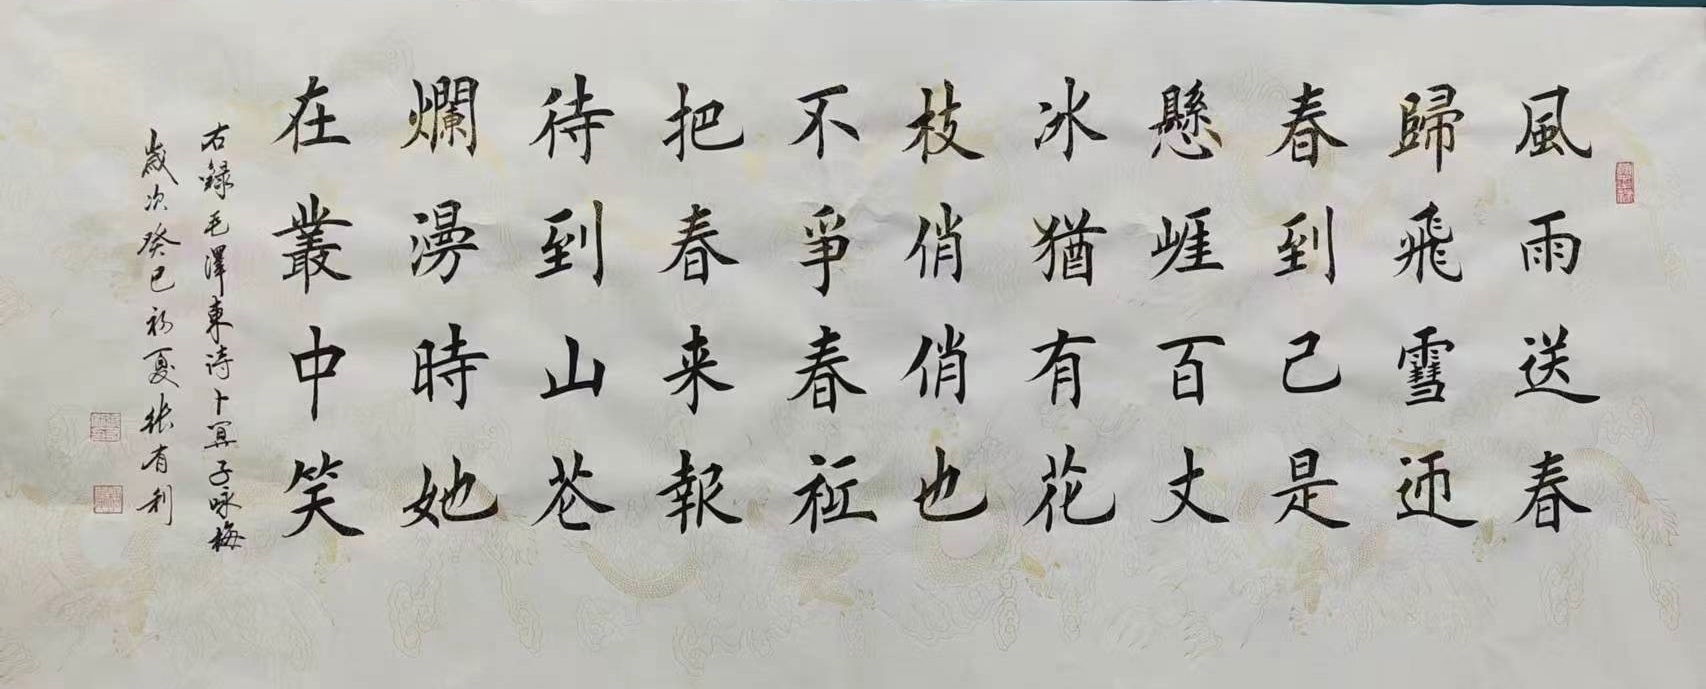 風雨送春
歸飛雪迊
春到已是
懸崕百丈
冰猶有花
枝俏俏也
不爭春祗
把春来報
待到山芲
爛漫時她
在叢中笑
右録毛澤東诗卜算子咏梅
歲次癸巳初夏张有利